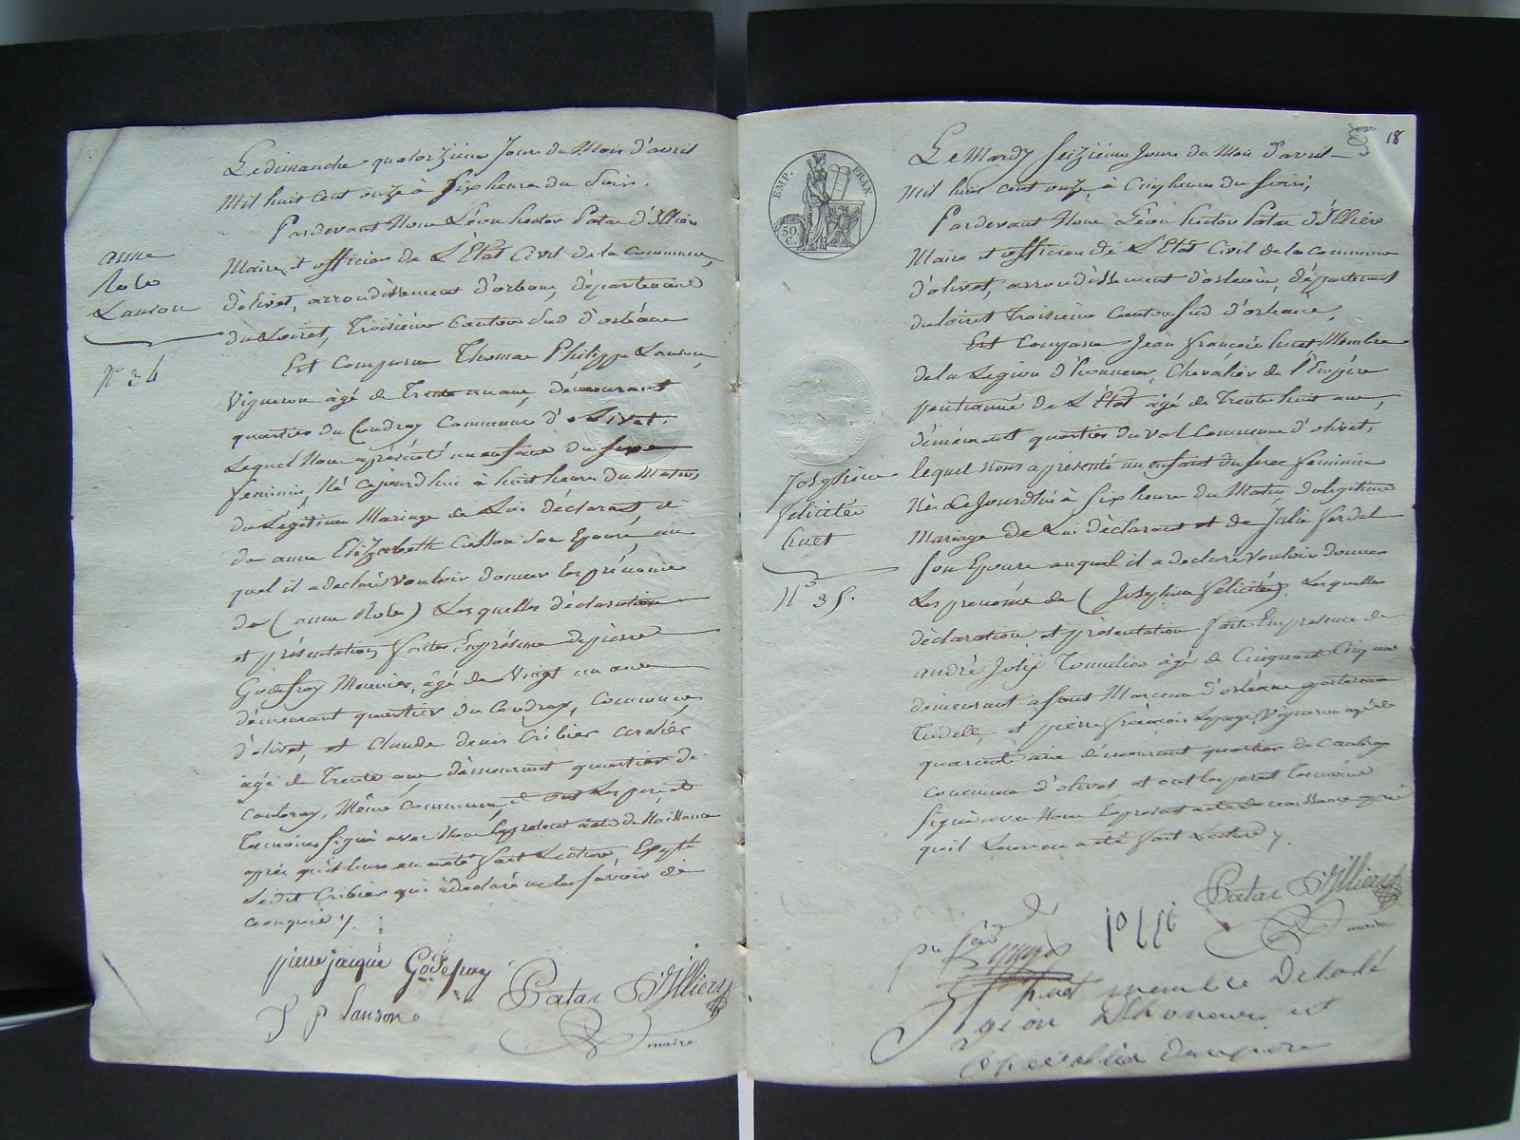 anne
Rose
Lanson
N° 34
Le dimanche quatorzieme Jour du Mois d'avril
Mil huit cent onze à Six heure du Soir.
Pardevant Nous Léon hector Patas d'Illiers
Maire et officier de L'Etat Civil de la Commune
d'olivet, arrondissement d'orleans, département
du Loiret, Troisieme Canton Sud d'orléans
Est Comparu Thomas Philippe Lanson,
Vigneron âgé de Trente un ans, démeurant
quartier du Coudray Commune d'olivet.
Lequel Nous a présenté un enfant du sexe
feminin, Né cejourdhui à huit heure du Matin,
du Légitime Mariage de Lui déclarant et
de anne Elizabeth Son Epouse, au
quel il a declaré vouloir donner Les prénoms
de (anne Rose) Lesquelles déclaration
et présentation faites En présence de pierre
Godefroy Meunier, âgé de Vingt un ans
démeurant quartier du Coudray, commune
d'olivet, et Claude denis Cribier
âgé de Trente ans démeurant quartier du
Coudray, Même Commune, et ont Les pere et
Temoins Signé avec Nous Le present acte de Naissance
après qu'il leur en a été fait Lecture, Excepté
Ledit Cribier qui a declaré ne le savoir de
ce enquis /.
pierre jacque Godefroy
T P Lanson
Patas D'Illiers
maire
18
EMP. FRAN.
50 C.
Josephine
felicitée
huet
N° 35.
Le Mardy Seizieme Jour du Mois d'avril
Mil huit cent onze, à Cinq heure du Soir,
Pardevant Nous Léon hector Patas d'Illiers
Maire et officier de L'Etat Civil de la Commune
d'olivet, arrondissement d'orleans, département
du Loiret Troisieme Canton Sud d'orleans,
Est Comparu Jean françois huet Membre
de la Legion d'honneur, Chevalier de l'Empire
pentionné de L'Etat âgé de Trente huit ans,
démeurant quartier du val Commune d'olivet,
lequel nous a presenté un enfant du sexe feminin
Né Cejourdhui à Six heure du Matin, du legitime
Mariage de Lui déclarant et de Julie
Son Epouse auquel il a declaré Vouloir donner
Les prenoms de (Josephine felicitée) Lesquelles
déclaration et présentation faite En presence de
andré Joly Tonnelier âgé de Cinquante Cinq ans
demeurant a faubourg Marceau d'orléans
et pierre françois Lepage, Vigneron agé de
quarente ans démeurant quartier du Coudray
commune d'olivet, et ont les pere et temoins
Signé avec Nous Le present acte de naissance après
qu'il Leur en a été fait Lecture /.
Patas D'Illiers
maire
jolli
huet membre De la lé
gion Dhonneur et
Chevallier danpire